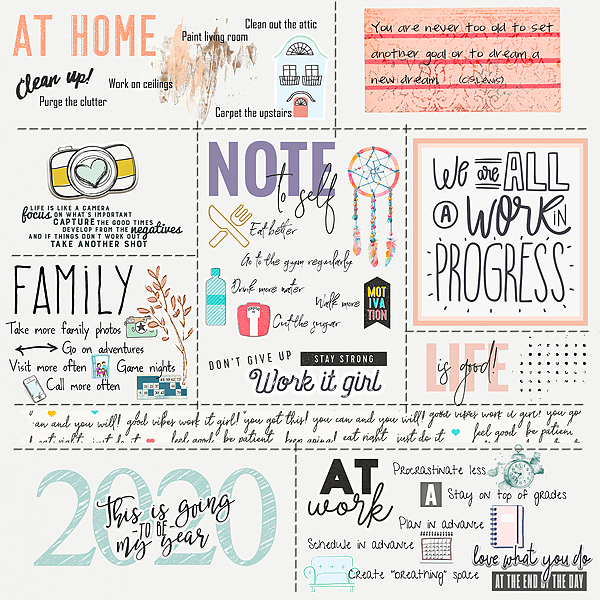 AT HOME
Clean out the attic
Paint living room
Clean up!
Work on ceilings
Purge the clutter
Carpet the upstairs
You are never too old to set
another goal or to dream a
new dream. (CS Lewis)
LIFE IS LIKE A CAMERA
focus ON WHAT'S IMPORTANT
CAPTURE THE GOOD TIMES
DEVELOP FROM THE negatives
AND IF THINGS DON'T WORK OUT
TAKE ANOTHER SHOT
NOTE
to self
Eat better
Go to the gym regularly
Drink more water
Walk more
MOTIVATION
Cut the sugar
DON'T GIVE UP
STAY STRONG
Work it girl
We are ALL
A WORK IN
PROGRESS
FAMILY
Take more family photos
Go on adventures
Visit more often
Game nights
Call more often
LIFE
is good!
an and you will! good vibes work it girl! you got this! you can and you will! good vibes work it girl! you go
eat right just do it feel good be patient keep going! eat right just do it feel good be patient
2020
This is going
-TO BE-
my year
AT
work
Procrastinate less
A
Stay on top of grades
Plan in advance
Schedule in advance
Create "breathing" space
love what you do
AT THE END OF THE DAY